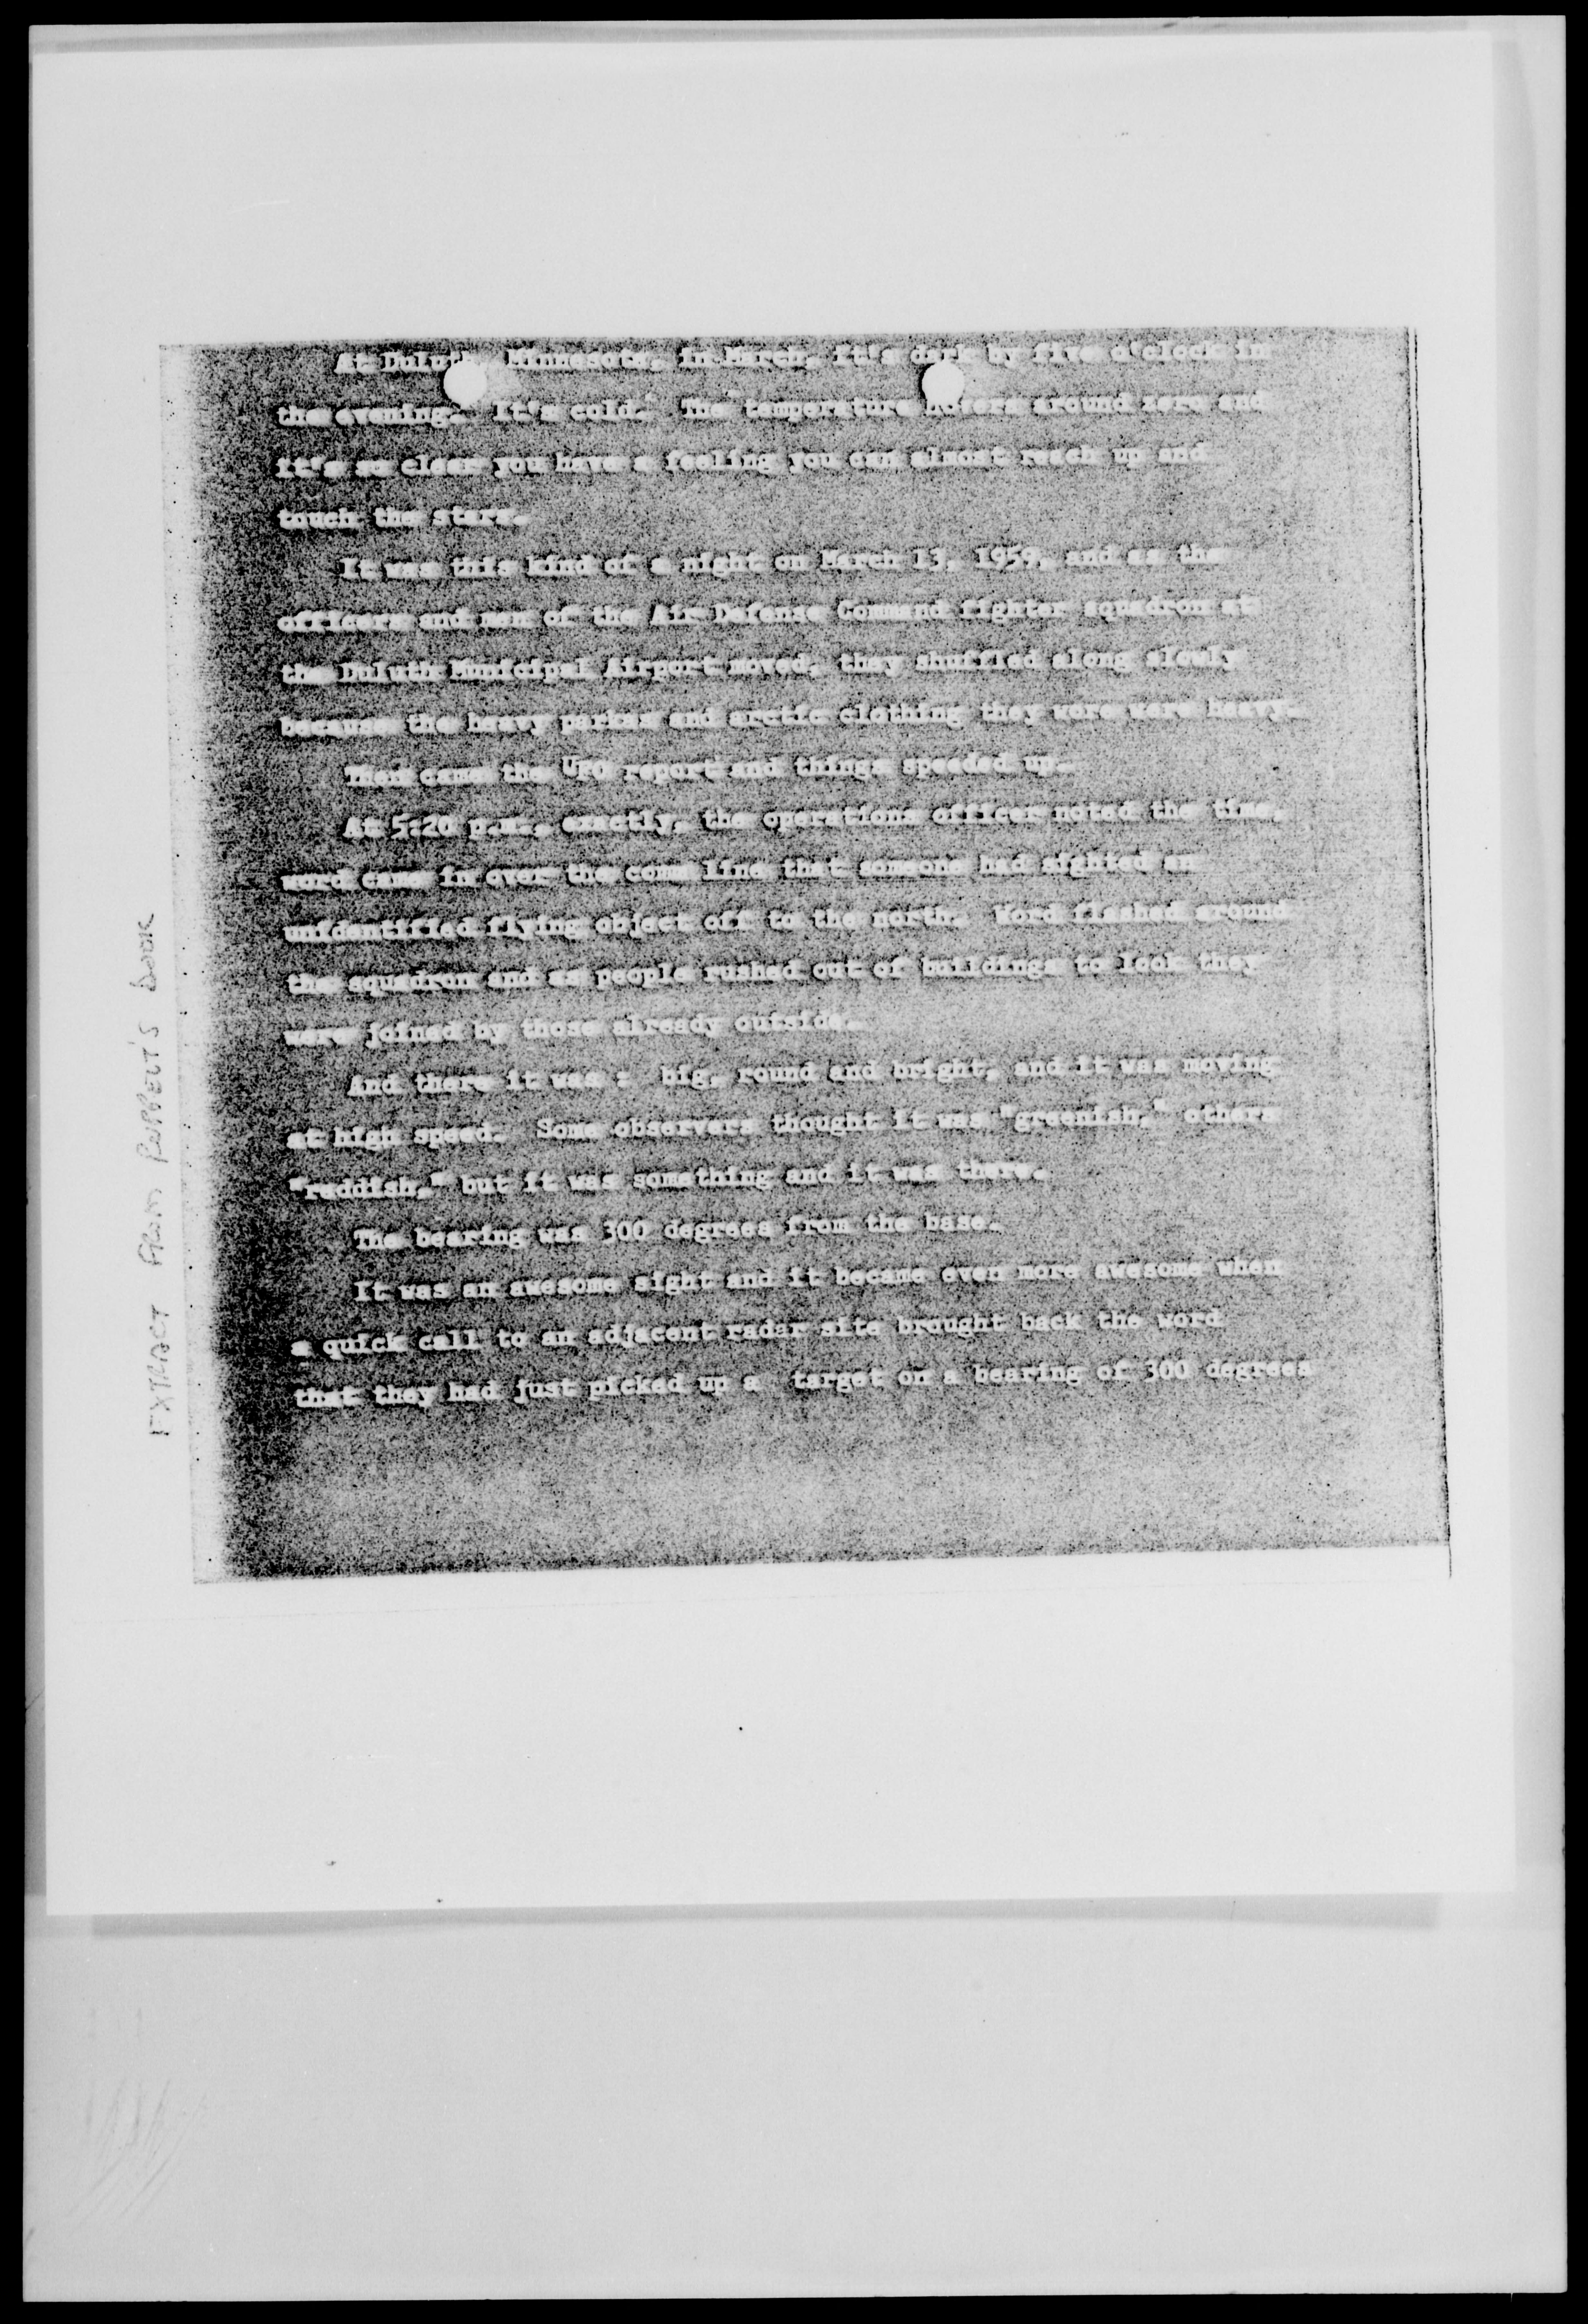 At Duluth, Minnesota, in March, it's dark by five o'clock in
the evening. It's cold. The temperature hovers around zero and
it's so clear you have a feeling you can almost reach up and
touch the stars.
It was this kind of a night on March 13, 1959, and as the
officers and men of the Air Defense Command fighter squadron at
the Duluth Municipal Airport moved, they shuffled along slowly
because the heavy parkas and arctic clothing they wore were heavy.
Then came the UFO report and things speeded up.
At 5:20 p.m., exactly, the operations officer noted the time,
word came in over the comm line that someone had sighted an
unidentified flying object off to the north. Word flashed around
the squadron and as people rushed out of buildings to look they
were joined by those already outside.
And there it was : big, round and bright, and it was moving
at high speed. Some observers thought it was "greenish," others
"reddish," but it was something and it was there.
The bearing was 300 degrees from the base.
It was an awesome sight and it became even more awesome when
a quick call to an adjacent radar site brought back the word
that they had just picked up a target on a bearing of 300 degrees
EXTRACT FROM RUPPELT'S BOOK